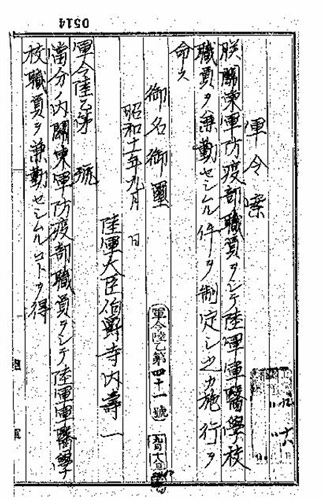 0514
軍令案
朕關東軍防疫部職員ヲシテ陸軍軍醫學校
職員ヲ兼勤セシムル件ヲ制定シ之カ施行ヲ
命ス
御名御璽
昭和十一年九月 日
陸軍大臣伯爵寺内壽一
軍令陸乙第四十一號
軍令陸乙第 號
當分ノ内關東軍防疫部職員ヲシテ陸軍軍醫學
校職員ヲ兼勤セシムルコトヲ得